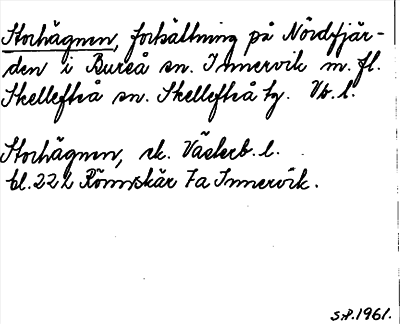 Storhägnen, fortsättning på Nördfjär-
den i Bureå sn. Innervik m. fl.
Skellefteå sn. Skellefteå tg. Vb. l.
Storhägnen, ek. Västerb. l.
bl. 22 L Rönnskär 7a Innervik.
S.P. 1961.